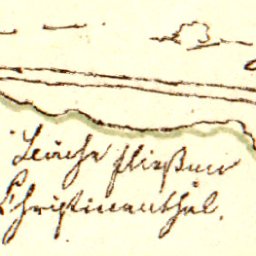 Leuche fließen
Christinenthal.